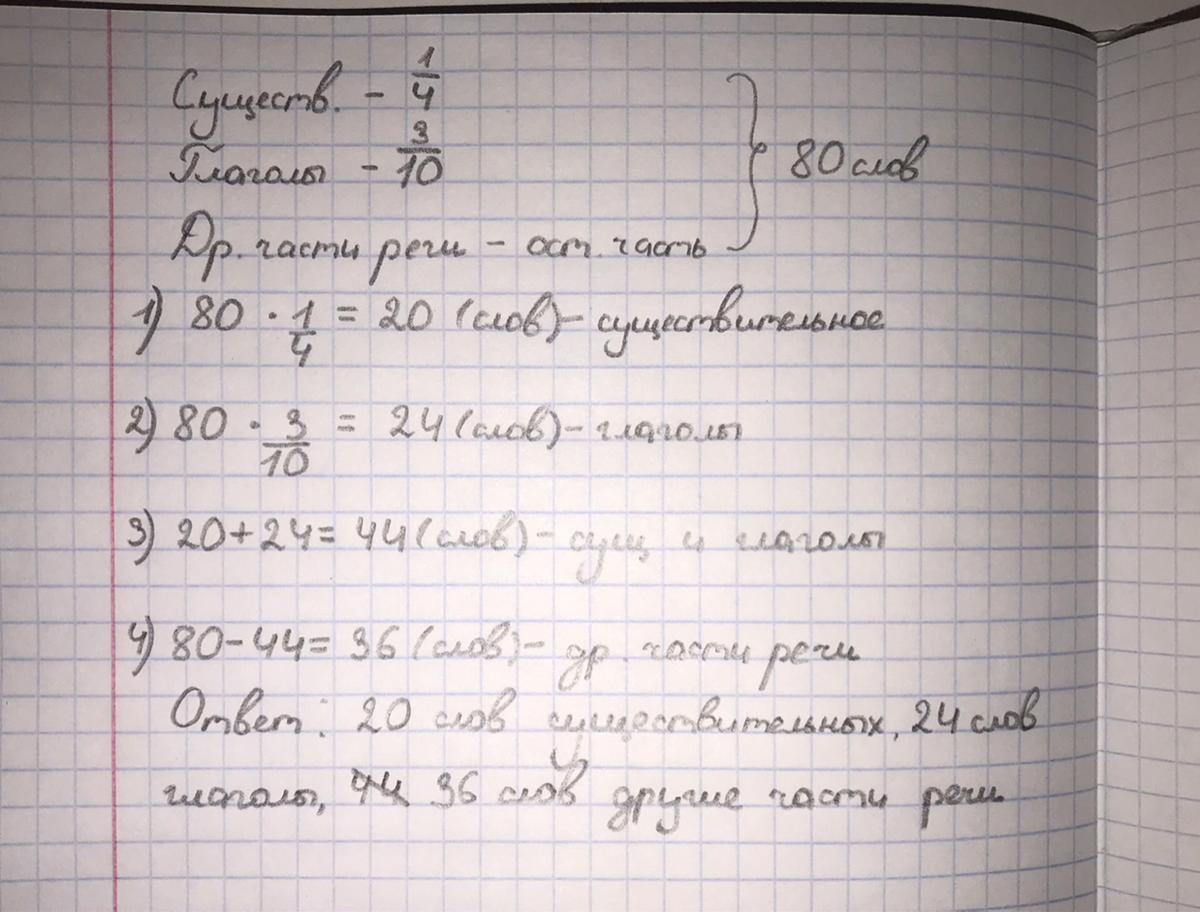 Существ. - 1/4
Глаголы - 3/10
80 слов
Др. части речи - ост. часть
1) 80 · 1/4 = 20 (слов) - существительное
2) 80 · 3/10 = 24 (слов) - глаголы
3) 20+24= 44 (слов) - сущ и глаголы
4) 80-44= 36 (слов) - др. части речи
Ответ: 20 слов существительных, 24 слов
глаголы, 36 слов другие части речи